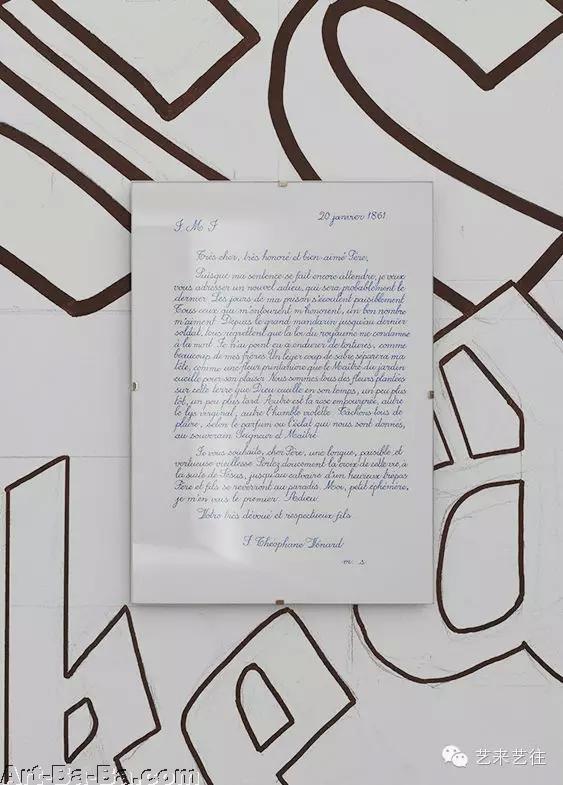 J M J
20 janvier 1861
Très cher, très honoré et bien-aimé Père,
Puisque ma sentence se fait encore attendre, je veux
vous adresser un nouvel adieu, qui sera probablement le
dernier. Les jours de ma prison s'écoulent paisiblement.
Tous ceux qui m'entourent m'honorent, un bon nombre
m'aiment. Depuis le grand mandarin jusqu'au dernier
soldat, tous regrettent que la loi du royaume me condamne
à la mort. Je n'ai point eu à endurer de tortures, comme
beaucoup de mes frères. Un léger coup de sabre séparera ma
tête, comme une fleur printanière que le Maître du jardin
cueille pour son plaisir. Nous sommes tous des fleurs plantées
sur cette terre que Dieu cueille en son temps, un peu plus
tôt, un peu plus tard. Autre est la rose empourprée, autre
le lys virginal, autre l'humble violette. Tâchons tous de
plaire, selon le parfum ou l'éclat qui nous sont donnés,
au souverain Seigneur et Maître.
Je vous souhaite, cher Père, une longue, paisible et
vertueuse vieillesse. Portez doucement la croix de cette vie, à
la suite de Jésus, jusqu'au calvaire d'un heureux trépas.
Père et fils se reverront au paradis. Moi, petit éphémère,
je m'en vais le premier. Adieu.
Votre très dévoué et respectueux fils
J Théophane Vénard
m. s.
Art-Ba-Ba.com
艺来艺往